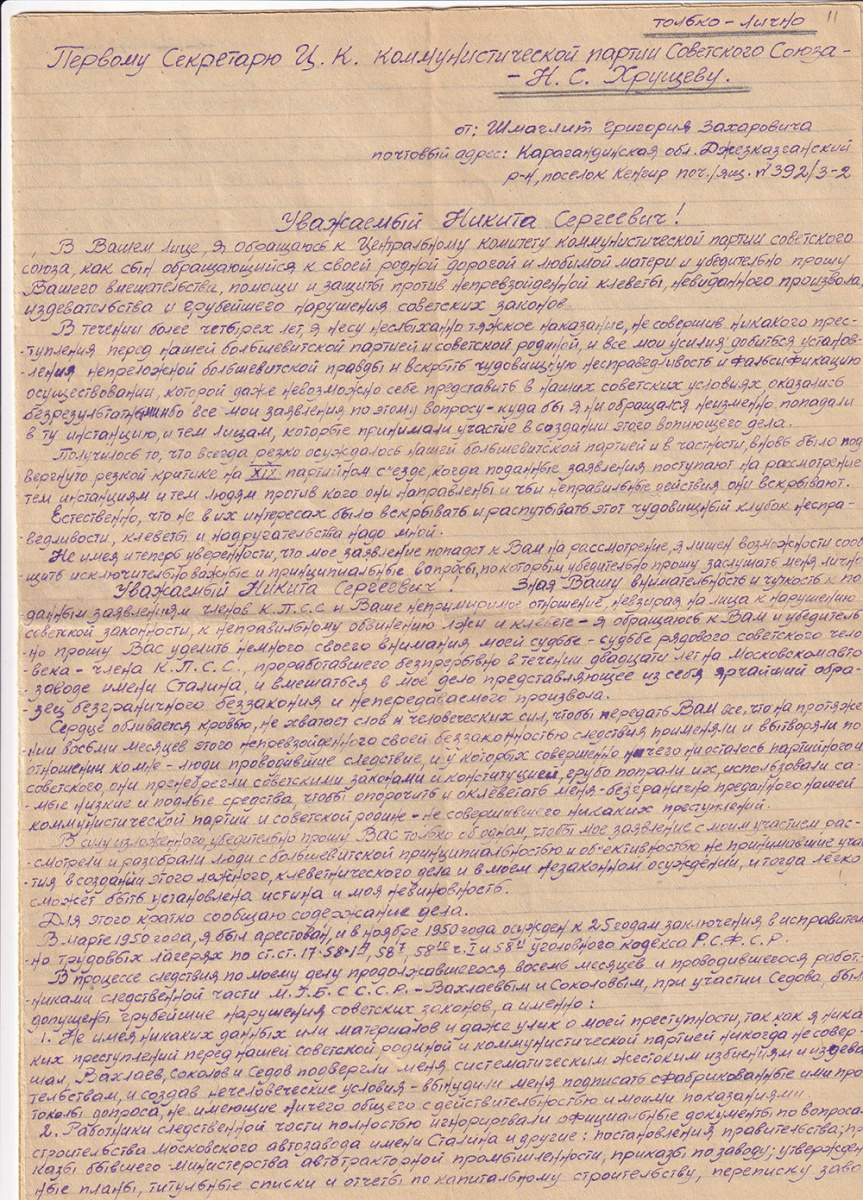 только-лично
11
Первому Секретарю Ц. К. Коммунистической партии Советского Союза-
- Н. С. Хрущеву.
от: Шмаглит Григория Захаровича
почтовый адрес: Карагандинская обл. Джезказганский
р-н, поселок Кенгир поч./ящ. № 392/3-2
Уважаемый Никита Сергеевич!
В Вашем лице, я обращаюсь к Центральному комитету коммунистической партии советского
союза, как сын обращающийся к своей родной дорогой и любимой матери и убедительно прошу
Вашего вмешательства, помощи и защиты против непревзойденной клеветы, невиданного произвола,
издевательства и грубейшего нарушения советских законов
В течении более четырех лет, я несу неслыханно тяжкое наказание, не совершив никакого прес-
-тупления перед нашей большевитской партией и советской родиной, и все мои усилия добиться установ-
-ления непреложной большевитской правды и вскрыть чудовищную несправедливость и фальсификацию
осуществовании, которой даже невозможно себе представить в наших советских условиях, оказались
безрезультатными ибо все мои заявления по этому вопросу - куда бы я ни обращался неизменно попадали
в ту инстанцию, и тем лицам, которые принимали участие в создании этого вопиющего дела.
Получилось то, что всегда резко осуждалось нашей большевитской партией и в частности, вновь было под
вергнуто резкой критике на XIX партийном с'езде, когда поданные заявления поступают на рассмотрение
тем инстанциям и тем людям против кого они направлены и чьи неправильные действия они вскрывают.
Естественно, что не в их интересах было вскрывать и распутывать этот чудовищный клубок неспра-
ведливости, клеветы и надругательства надо мной.
Не имея и теперь уверенности, что мое заявление попадет к Вам на рассмотрение, я лишен возможности сооб
щить исключительно важные и принципиальные вопросы, по которым убедительно прошу заслушать меня лично
Уважаемый Никита Сергеевич! Зная Вашу внимательность и чуткость к по
данным заявлениям членов К.П.С.С и Ваше непримиримое отношение, невзирая на лица к нарушению
советской законности, к неправильному обвинению лжи и клевете - я обращаюсь к Вам и убедитель
но прошу Вас уделить немного своего внимания моей судьбе - судьбе рядового советского чело
века - члена К.П.С.С., проработавшего безпрерывно в течении двадцати лет на Московском авто
заводе имени Сталина, и вмешаться в мое дело представляющее из себя ярчайший обра-
зец безграничного беззакония и непередаваемого произвола.
Сердце обливается кровью, не хватает слов и человеческих сил, чтобы передать Вам все, что на протяже
нии восьми месяцев этого непревзойденного своей беззаконностью следствия применяли и вытворяли по
отношении ко мне - люди проводившие следствие, и у которых совершенно ничего ни осталось партийного и
советского, они пренебрегли советскими законами и конституцией, грубо попрали их, использовали са-
-мые низкие и подлые средства, чтобы опорочить и оклеветать меня - безгранично преданного нашей
коммунистической партии и советской родине - не совершившего никаких преступлений.
В силу изложенного, убедительно прошу Вас только об одном, чтобы мое заявление с моим участием, рас-
-смотрели и разобрали люди с большевитской принципиальностью и об'ективностью не принимавшие учас
тия в создании этого ложного, клеветнического дела и в моем незаконном осуждении, и тогда легко
сможет быть установлена истина и моя невиновность.
Для этого кратко сообщаю содержание дела.
В марте 1950 года, я был арестован, и в ноябре 1950 года осужден к 25 годам заключения в исправитель
-но трудовых лагерях по ст.ст. 17-58-1а, 58⁷, 58¹⁰ ч. I и 58¹¹ уголовного кодекса Р.С.Ф.С.Р.
В процессе следствия по моему делу продолжавшегося восемь месяцев и проводившегося работ-
-никами следственной части М.Г.Б. С.С.С.Р. - Вахлаевым и Соколовым, при участии Седова, были
допущены грубейшие нарушения советских законов, а именно:
1. Не имея никаких данных или материалов и даже улик о моей преступности, так как я ника
ких преступлений перед нашей советской родиной и коммунистической партией никогда не совер-
шал, Вахлаев, Соколов и Седов подвергли меня систематическим жестоким избиениям и издева
тельствам, и создав нечеловеческие условия - вынудили меня подписать сфабрикованные ими про
токолы допроса, не имеющие ничего общего с действительностью и моими показаниями.
2. Работники следственной части полностью игнорировали официальные документы по вопроса
строительства Московского автозавода имени Сталина и другие: постановления правительства; пр
казы бывшего министерства автотракторной промышленности, приказы по заводу; утвержден
ные планы, титульные списки и отчеты по капитальному строительству, переписку заво